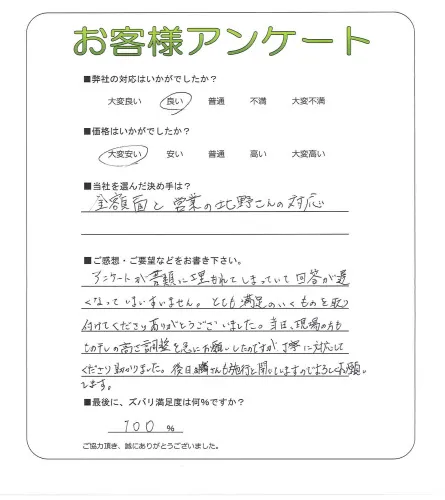 お客様アンケート
■弊社の対応はいかがでしたか?
大変良い 良い 普通 不満 大変不満
■価格はいかがでしたか?
大変安い 安い 普通 高い 大変高い
■当社を選んだ決め手は?
金額面と営業の北野さんの対応
■ご感想・ご要望などをお書き下さい。
アンケートが書類に埋もれてしまっていて回答が遅
くなってしまいすいません。とても満足のいくものを取り
付けてくださりありがとうございました。当日、現場の方も
の高さ調整を急にお願いしたのですが丁寧に対応して
くださり助かりました。後日 さんも施行と聞いてますのでよろしくお願い
します。
■最後に、ズバリ満足度は何%ですか?
100 %
ご協力頂き、誠にありがとうございました。